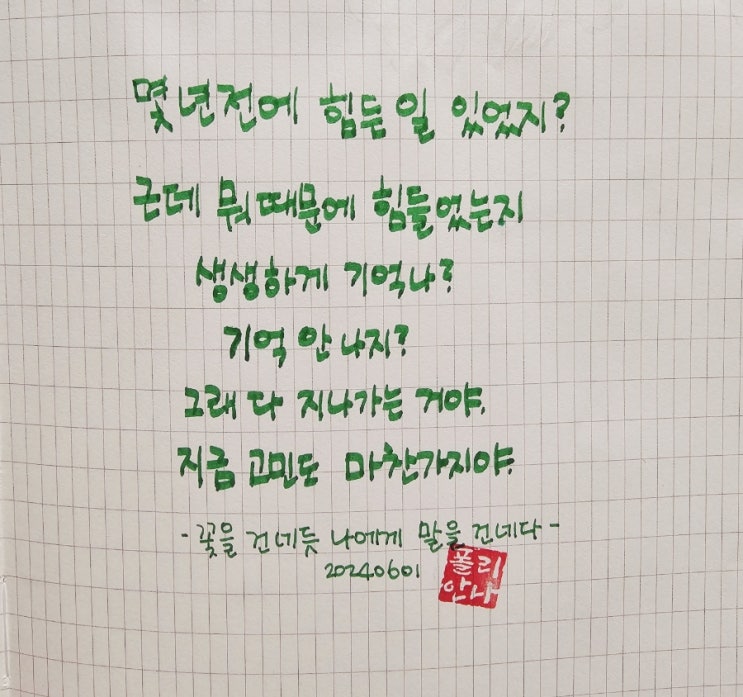 몇 년 전에 힘든 일 있었지?
근데 뭐 때문에 힘들었는지
생생하게 기억나?
기억 안 나지?
그래 다 지나가는 거야.
지금 고민도 마찬가지야.
- 꽃을 건네듯 나에게 말을 건네다 -
20240601
폴리
안나